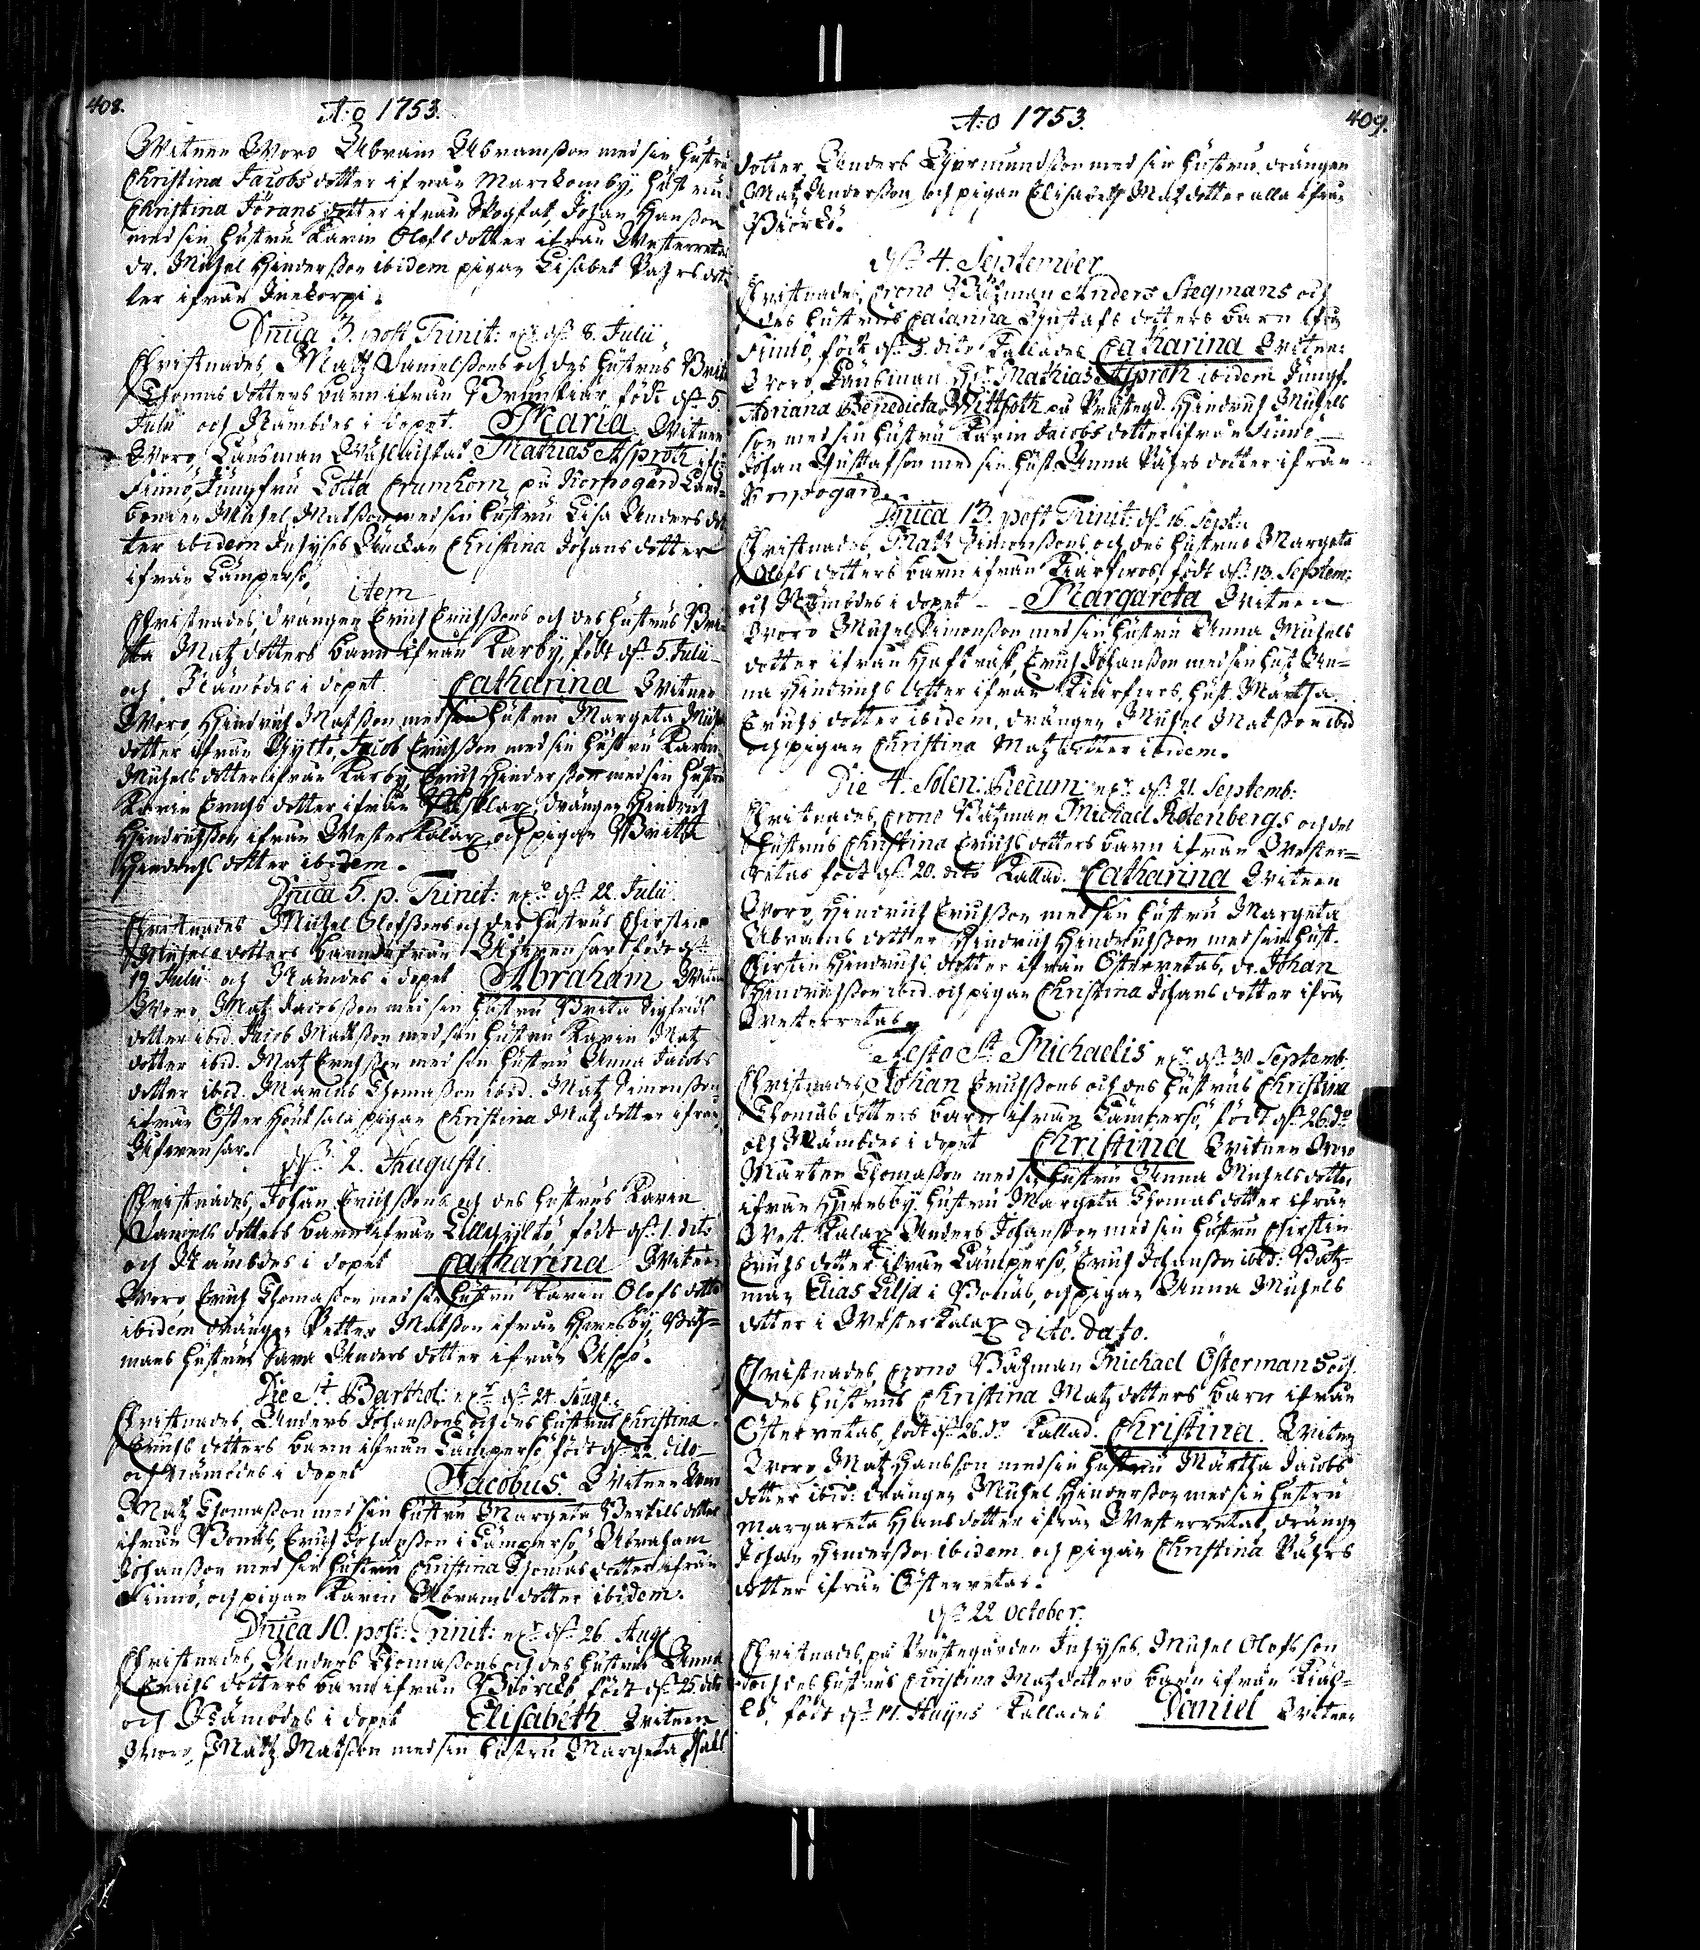 408.
A:o 1753.
Witnen Woro Abram Abramsson med sin hustru
Christina Jacobs dotter ifrån Marckomby, hustru
Christina Jörans dotter ifrån Skogfat, Johan Hansson
med sin hustru Karin Olofs dotter ifrån Westerretas
dr. Michel Hindersson ibidem pigan Lisabet Påhrs dot
ter ifrån
Dnica 3. post Trinit: dn 8. Julii
Christnades Matz Danielssons och des hustrus Brita
Thomas dotters barn ifrån född dn 5.
Julii och Nämbdes i dopet Maria Witnen
Woro, Länsman Mathias Asproth
Finnö, Jungfru Lotta Crumhorn på Korpogård Land-
bonden Michel Matsson med sin hustru Lisa Anders dot
ter ibidem Inhyses Änckan Christina Johans dotter
ifrån Lämpersö,
item
Christnades, drängen Erich Erichssons och des hustrus Bri-
ta Matz dotters barn ifrån Karby, född dn 5. Julii
och Nämbdes i dopet. Catharina Witnen
Woro, Hindrich Matsson med sin hustru Margeta Michels
dotter ifrån Gyttö, Jacob Erichsson med sin hustru Karin
Michels dotter ifrån Karby Erich Hindersson med sin hustru
Karin Erichs dotter ifrån drängen Hindrich
Hindrichsson ifrån Wester Kalax, och pigan Britta
Hindrichs dotter ibidem.
Dnica 5. p. Trinit: dn 22 Julii
Christnades Michel Olofssons och des hustrus Chirstin
Michels dotters barn ifrån Åfvensar född dn
19 Julii och Nämdes i dopet Abraham Witnen
Woro, Matz Jacobsson med sin hustru Brita Sigfrids
dotter ibid. Jacob Mattsson med sin hustru Karin Matz
dotter ibid. Matz Erichsson med sin hustru Anna Jacobs
dotter ibid. Marcus Thomasson ibid. Matz Simonsson
ifrån Öster Hönsala pigan Christina Matz dotter ifrån
Åfvensar.
dn 2. Augusti.
Christnades, Johan Erichssons och des hustrus Karin
Daniels dotters barn ifrån Lillgyltö, född dn 1. dito
och Nämbdes i dopet Catharina Witnen
Woro Erich Thomasson med sin hustru Karin Olofs dotter
ibidem drängen Petter Matsson ifrån Hvresby, Båtz-
mans hustrun Sara Anders dotter ifrån Aspö.
Die St Barthol: dn 24. Aug.
Christnades, Anders Johanssons och des hustrus Christina
Erichs dotters barn ifrån Lämpersö född dn 22. dito
och Nämbdes i dopet Jacobus. Witnen Woro
Matz Thomasson med sin hustru Margeta Bertils dotter
ifrån Bonäs, Erich Johansson i Lämpersö, Abraham
Johansson med sin hustru Christina Thomas dotter ifrån
Finnö, och pigan Karin Abrams dotter ibidem.
Dnica 10. post: Trinit: dn 26. Aug.
Christnades, Anders Thomassons och des hustrus Anna
Erichs dotters barn ifrån Biörckö född dn 25. dito
och Nämbdes i dopet Elisabeth Witnen
Woro, Matz Matsson med sin hustru Margeta
409.
A:o 1753.
dotter, Anders Giermundsson med sin hustru drängen
Matz Andersson, och pigan Elisabeth Matz dotter alla ifrån
Biörckö.
dn 4. September
Christnades, Crono Båtzman Anders Stegmans och
des hustrus Catarina Gustafs dotters barn ifrån
Finnö, född dn 3. dito Kallades Catharina Witnen
Woro Länsman Hr Mathias Asproth ibidem Jungf.
Adriana Benedicta Wittfoth på Prästegd. Hindrich Michels
son med sin hustru Karin Jacobs dotter ifrån Finnö
Johan Gustafson med sin hust. Anna Påhrs dotter ifrån
Korpogård.
Dnica 13. post Trinit: dn 16. Sept:
Christnades, Matz Simonssons och des hustrus Margeta
Olofs dotters barn ifrån född dn 13. Septem:
och Nämbdes i dopet Margareta Witnen
Woro Michel Simonsson med sin hustru Anna Michels
dotter ifrån Erich Johansson med sin hust An-
na Hindrichs dotter ifrån Hust. Märtha
Erichs dotter ibidem, drängen Michel Matsson ibid
och pigan Christina Matz dotter ibidem.
Die 4. Solen: Precum: dn 21. Septemb:
Christnades, Crono Båtzman Michael Rotenbergs och des
hustrus Christina Erichs dotters barn ifrån Wester-
retas född dn 20. dito Kallad. Catharina Witnen
Woro, Hindrich Erichsson med sin hustru Margeta
Abrams dotter Hindrich Hindrichsson med sin hust.
Chirstin Hindrichs dotter ifrån Österretas, dr. Johan
Hindrichsson ibid. och pigan Christina Johans dotter ifrån
Westerretas.
Festo St Michaelis dn 30 Septemb.
Christnades, Johan Erichssons och des hustrus Christina
Thomas dotters barn ifrån Lämpersö, född dn 26. do
och Nämbdes i dopet Christina Witnen Woro
Mårten Thomasson med sin hustru Anna Michels dotter
ifrån Hvresby. hustru Margeta Thomas dotter ifrån
West. Kalax Anders Johansson med sin hustru Chirstin
Erichs dotter ifrån Lämpersö, Erich Johansson ibid: Båtz-
man Elias Lilja i Bonäs, och pigan Anna Michels
dotter i Wester Kalax
Dito. Dato.
Christnades, Crono Båtzman Michael Östermans och
des hustrus Christina Matz dotters barn ifrån
Österretas, född dn 26. do Kallad. Christina. Witnen
Woro, Matz Hansson med sin hustru Märtha Jacobs
dotter ibid: drängen Michel Hindersson med sin hustru
Margareta Hans dotter ifrån Westerretas, drängen
Johan Hindersson ibidem och pigan Christina Påhrs
dotter ifrån Österretas.
dn 22 October.
Christnades, på Prästegården Inhyses, Michel Olofsson
och des hustrus Christina Matz dotters barn ifrån
född dn Kallades Daniel Witnen